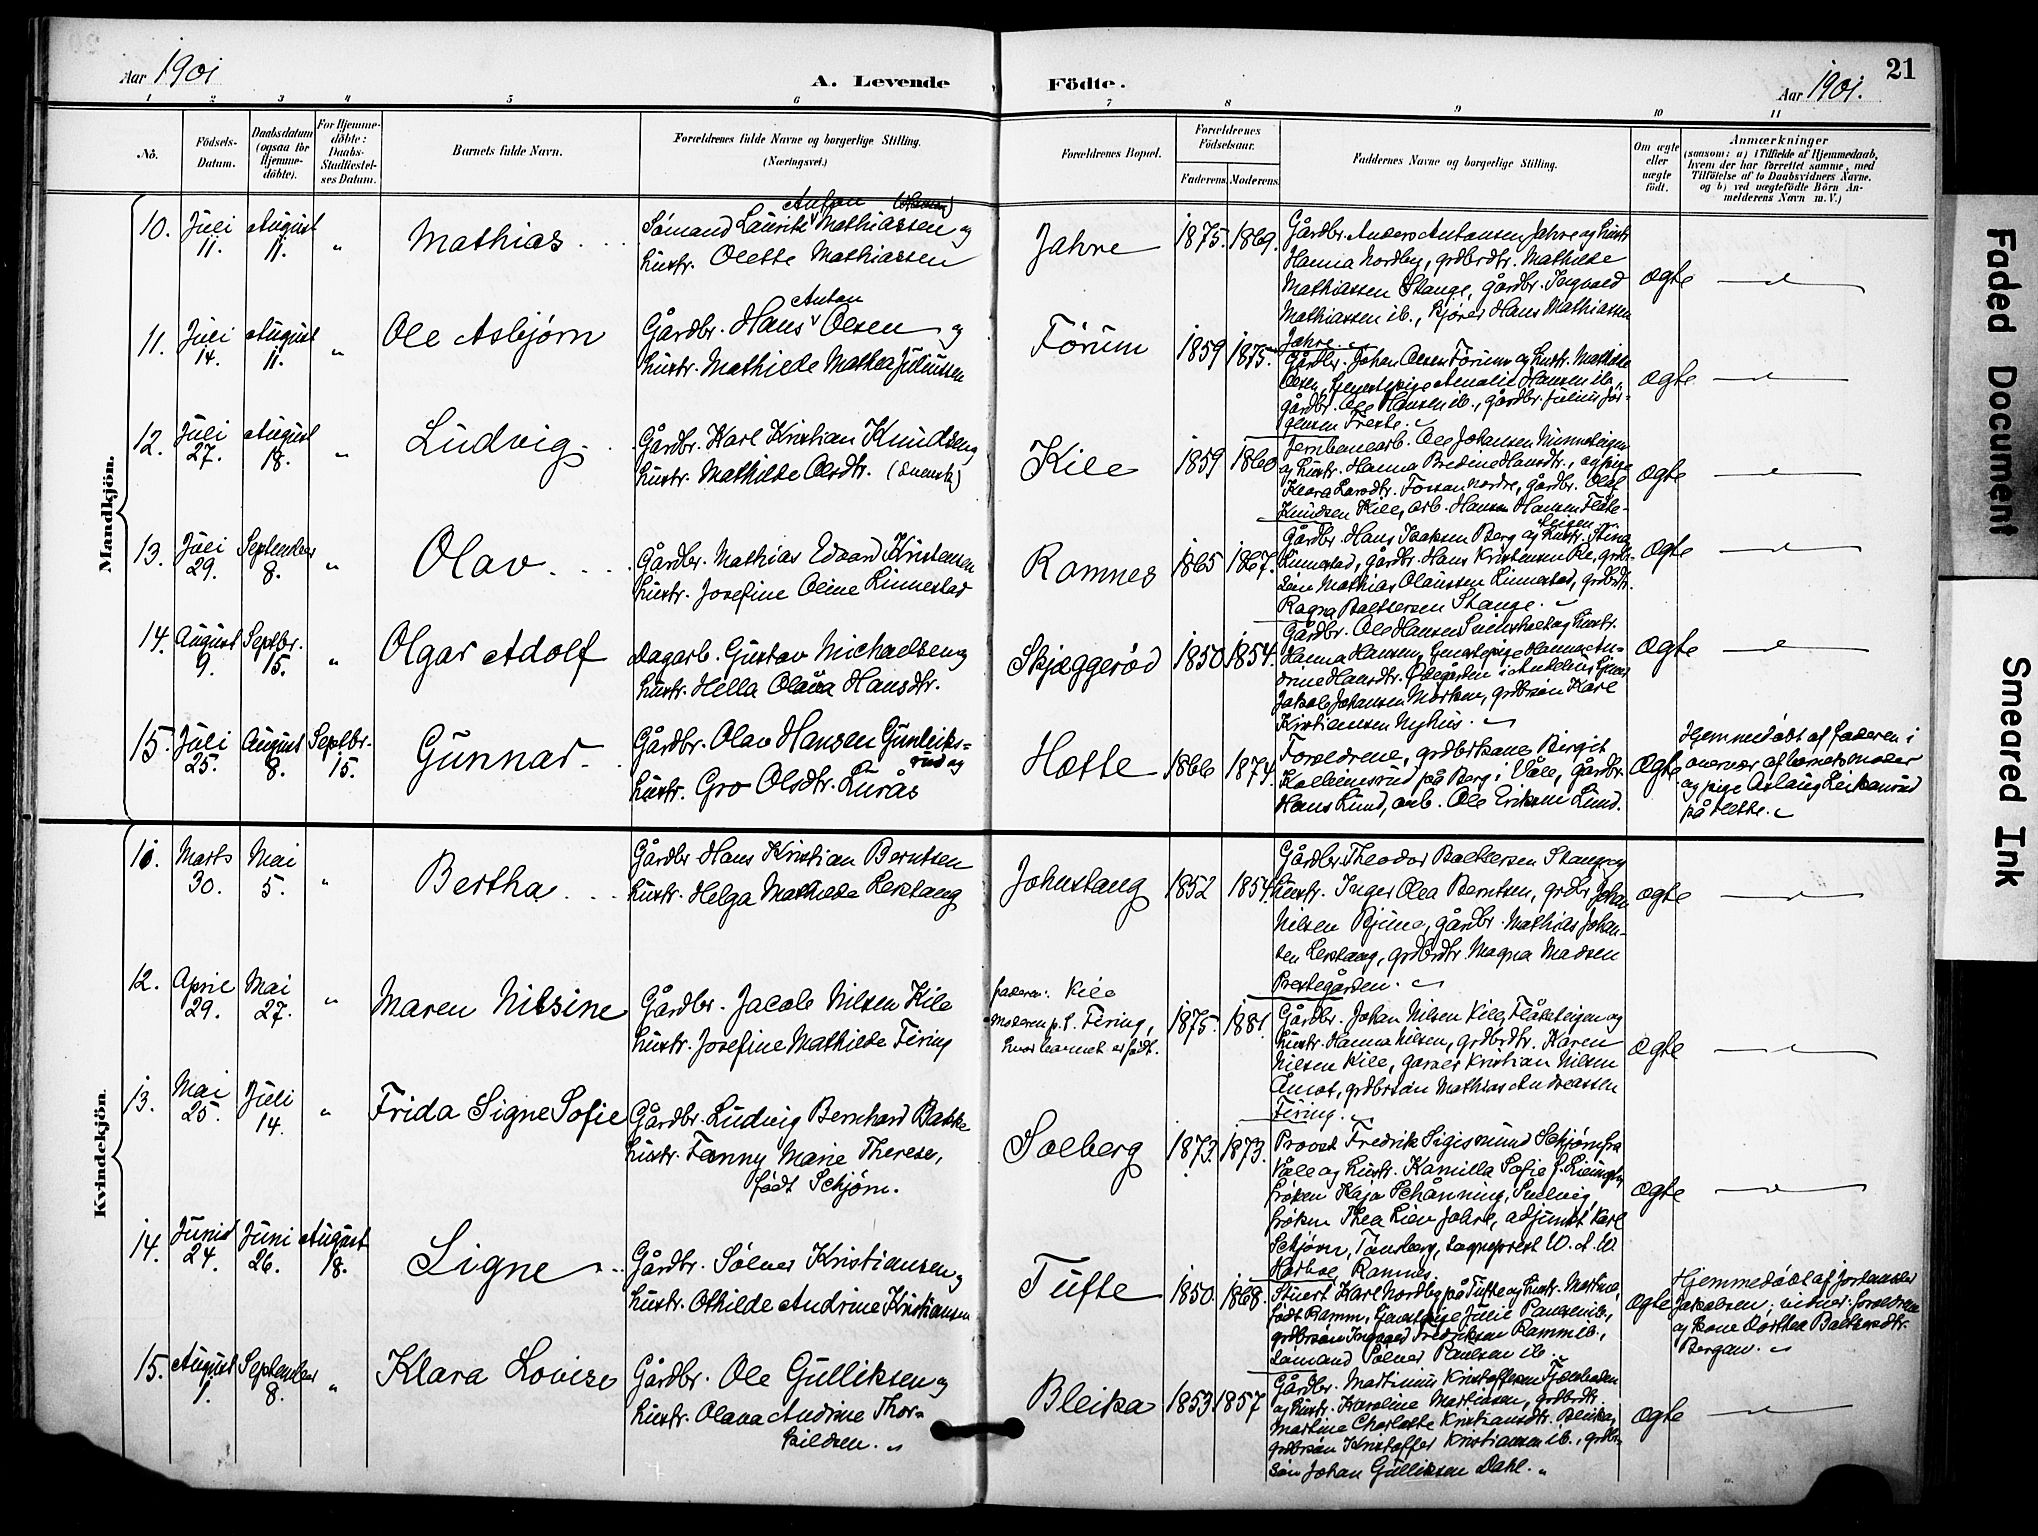 Aar 1901
A. Levende Födte.
Aar 1901.
21
1 2 3 4 5 6 7 8 9 10 11
No.
Födsels-Datum.
Daabsdatum (ogsaa for Hjemme-döbte).
For Hjemme-döbte: Daabs-Stadfæstel-ses Datum.
Barnets fulde Navn.
Forældrenes fulde Navne og borgerlige Stilling.
(Næringsvei.)
Forældrenes Bopæl.
Forældrenes Födselsaar.
Faderens. Moderens.
Faddernes Navne og borgerlige Stilling.
Om ægte eller uægte födt.
Anmærkninger
(saasom: a) i Tilfælde af Hjemmedaab,
hvem der har forrettet samme, med
Tilföielse af to Daabsvidners Navne,
og b) ved uægtefödte Börn An-
melderens Navn m. V.)
Mandkjön.
10. Juli 11. August 11. " Mathias
Sømand Lauritz Anton Mathiassen og
hustr. Olette Mathiassen
Jahre 1875. 1869.
Gårdbr. Anders Antonsen Jahre og hustr.
Hanna Nordby, grdbrdtr. Mathilde
Mathiassen Stange, gårdbr. Ingvald
Mathiassen ib., Hans Mathiassen
Jahre.
ægte
11. Juli 14. August 11. " Ole Asbjørn
Gårdbr. Hans Anton Olsen og
hustr. Mathilde Mathea Juliussen
Førum 1859 1875.
Gårdbr. Johan Olsen Førum og hustr. Mathilde
Olsen, tjenestepige Amalie Hansen ib.,
gårdbr. Ole Hansen ib., gårdbr. Julius Jør-
gensen Freste.
ægte
12. Juli 27. August 18. " Ludvig
Gårdbr. Karl Kristian Knudsen og
hustr. Mathilde Olsdtr. (svensk)
Kile 1859 1860
Jernbanearb. Ole Johansen
og hustr. Hanna Bredine Hansdtr., og pige
Klara Larsdtr. Fossan nordre, gårdbr. Olaf
Knudsen Kile, arb. Hans Hansen Flåte-
eigen
ægte
13. Juli 29. September 8. " Olav
Gårdbr. Mathias Edvard Kristensen
hustr. Josefine Oline Linnestad
Ramnes 1865 1867.
Gårdbr. Hans Isaksen Berg og hustr. Stina
Linnestad, gårdbr. Hans Kristensen Re, grdbr.-
søn Mathias Olaussen Linnestad, grdbrdtr.
Ragna Baltersen Stange.
ægte
14. August 9. Septbr. 15. " Olgar Adolf
Dagarb. Gustav Michaelsen og
hustr. Hella Olava Hansdtr.
Skjæggerød 1850 1854.
Gårdbr. Ole Hansen og hustr.
Hanna Hansen, tjenestepige Hanna An-
drine Hansdtr. Ødegården i
Jakob Johansen Morken, grdbrsøn Karl
Kristiansen Nyhus.
ægte
15. Juli 25. August 8. Septbr. 15. Gunnar
Gårdbr. Olav Hansen Gunleiks-
rud og
hustr. Gro Olsdtr. Lurås
Hotte 1866 1874.
Foreldrene, grdbrkone Birgit
Kolbeinsrud på Berg i Våle, gårdbr.
Hans Lund, arb. Ole Eriksen Lund.
ægte
Hjemmedøbt af faderen i
overvær af barnets moder
og pige Aslaug Leikanrud
på Hotte.
Kvindekjön.
11. Marts 30. Mai 5. " Bertha
Gårdbr Hans Kristian Berntsen
hustr. Helga Mathilde Lerstang
Johnstang 1852 1854.
Gårdbr. Theodor Baltersen Stange og
hustr. Inger Olea Berntsen, grdbr Johan
Nilsen Bjune, gårdbr. Mathias Johan-
sen Lerstang, grdbrdtr. Magna Madsen
Prestegården.
ægte
12. April 29. Mai 27. " Maren Nilsine
Gårdbr. Jacob Nilsen Kile
hustr. Josefine Mathilde Firing
faderen: Kile
moderen p.t. Firing,
hvor barnet er født.
1875. 1881.
Gårdbr. Johan Nilsen Kile, Flåteeigen og
hustr. Hanna Nilsen, grdbrdtr. Karen
Nilsen Kile, garver Kristian Nilsen
Åmot, grdbrsøn Mathias Andreassen
Firing.
ægte
13. Mai 25. Juli 14. " Frida Signe Sofie
Gårdbr. Ludvig Bernhard Bakke
hustr. Fanny Marie Therese,
født Schjørn.
Solberg 1873. 1873.
Provst Fredrik Sigismund Schjørn fra
Våle og hustr. Kamilla Sofie f.
frøken Kaja Schånning,
frøken Thea Lien Jahre, adjunkt Karl
Schjørn, Tønsberg, sogneprest W. A. W.
Harboe, Ramnes.
ægte
14. Juni 24. Juni 26. August 18. Signe
Gårdbr. Sølver Kristiansen og
hustr. Othilde Andrine Kristiansen
Tufte 1850. 1868.
Stuert Karl Nordby på Tufte og hustr. Martine,
født Ramm, tjenestepige Julie Paulsen ib.,
grdbrsøn Ingvald Fredriksen Ramm ib.,
sømand Sølver Paulsen ib.
ægte
Hjemmedøbt af jordmoder
Jakobsen; vidner: foreldrene
og kone Dorthea Baltersdtr.
Bergan.
15. August 1. September 8. " Klara Lovise
Gårdbr. Ole Gulliksen og
hustr. Olava Andrine Thor-
kildsen.
Bleika 1853 1857
Gårdbr. Martinus Kristoffersen
og hustr. Karoline Martinsen, grdbrdtr.
Martine Charlotte Kristiansdtr. Bleika,
grdbrsøn Kristoffer Kristiansen ib., grdbr-
søn Johan Gulliksen Dahl.
ægte
Faded Document
Smeared Ink